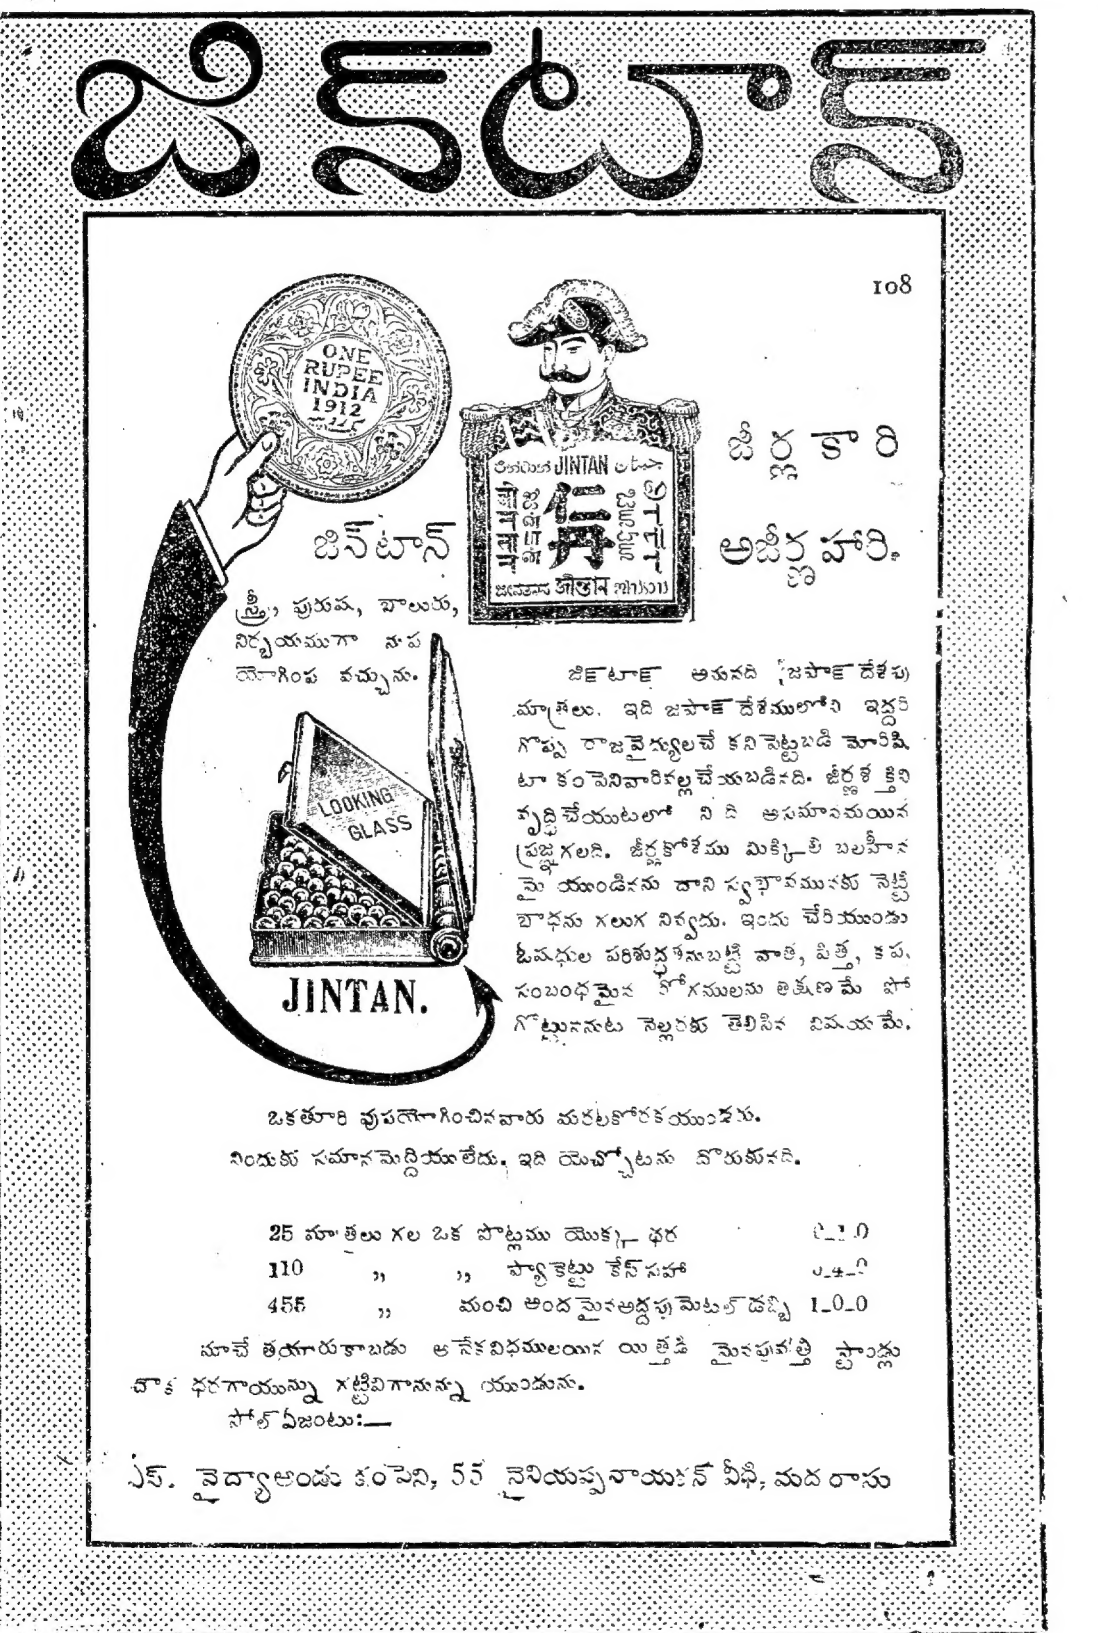 జిన్‌టాన్
108
ONE
RUPEE
INDIA
1912
JINTAN
仁丹
जीन्तान
జీర్ణకారి
జిన్‌టాన్
అజీర్ణహారి.
స్త్రీ, పురుష, బాలురు,
నిర్భయముగా నుప
యోగింప వచ్చును.
LOOKING
GLASS
JINTAN.
జిన్‌టాన్ అనునది జపాన్ దేశపు
మాత్రలు. ఇది జపాన్ దేశములోని ఇద్దరి
గొప్ప రాజవైద్యులచే కనిపెట్టబడి మోరిషి
టా కంపెనివారివల్ల చేయబడినది. జీర్ణశక్తిని
వృద్ధిచేయుటలో నిది అసమానమయిన
ప్రజ్ఞగలది. జీర్ణకోశము మిక్కిలి బలహీన
మై యుండినను దాని స్వభావమునకు నెట్టి
బాధను గలుగ నివ్వదు. ఇందు చేరియుండు
ఓషధుల పరిశుద్ధతనుబట్టి వాత, పిత్త, కప,
సంబంధమైన రోగములను తక్షణమే పో
గొట్టుననుట నెల్లరకు తెలిసిన విషయమే.
ఒకతూరి వుపయోగించినవారు మరలకోరకయుండరు.
నిందుకు సమానమెద్దియులేదు. ఇది యెచ్చోటను దొరుకునది.
25 మాత్రలు గల ఒక పొట్లము యొక్క ధర
110 ,, ,, ప్యాకెట్టు కేస్ సహా
455 ,, మంచి అందమైనఅద్దపు మెటల్ డబ్బి 1-0-0
మాచే తయారుకాబడు అనేకవిధములయిన యిత్తడి మైనపువత్తి స్టాండ్లు
చౌక ధరగాయున్ను గట్టివిగానున్ను యుండును.
సోల్ ఏజంటు:—
ఎస్. వైద్యాఅండు కంపెని, 55 నైనియప్పనాయకన్ వీధి, మదరాసు